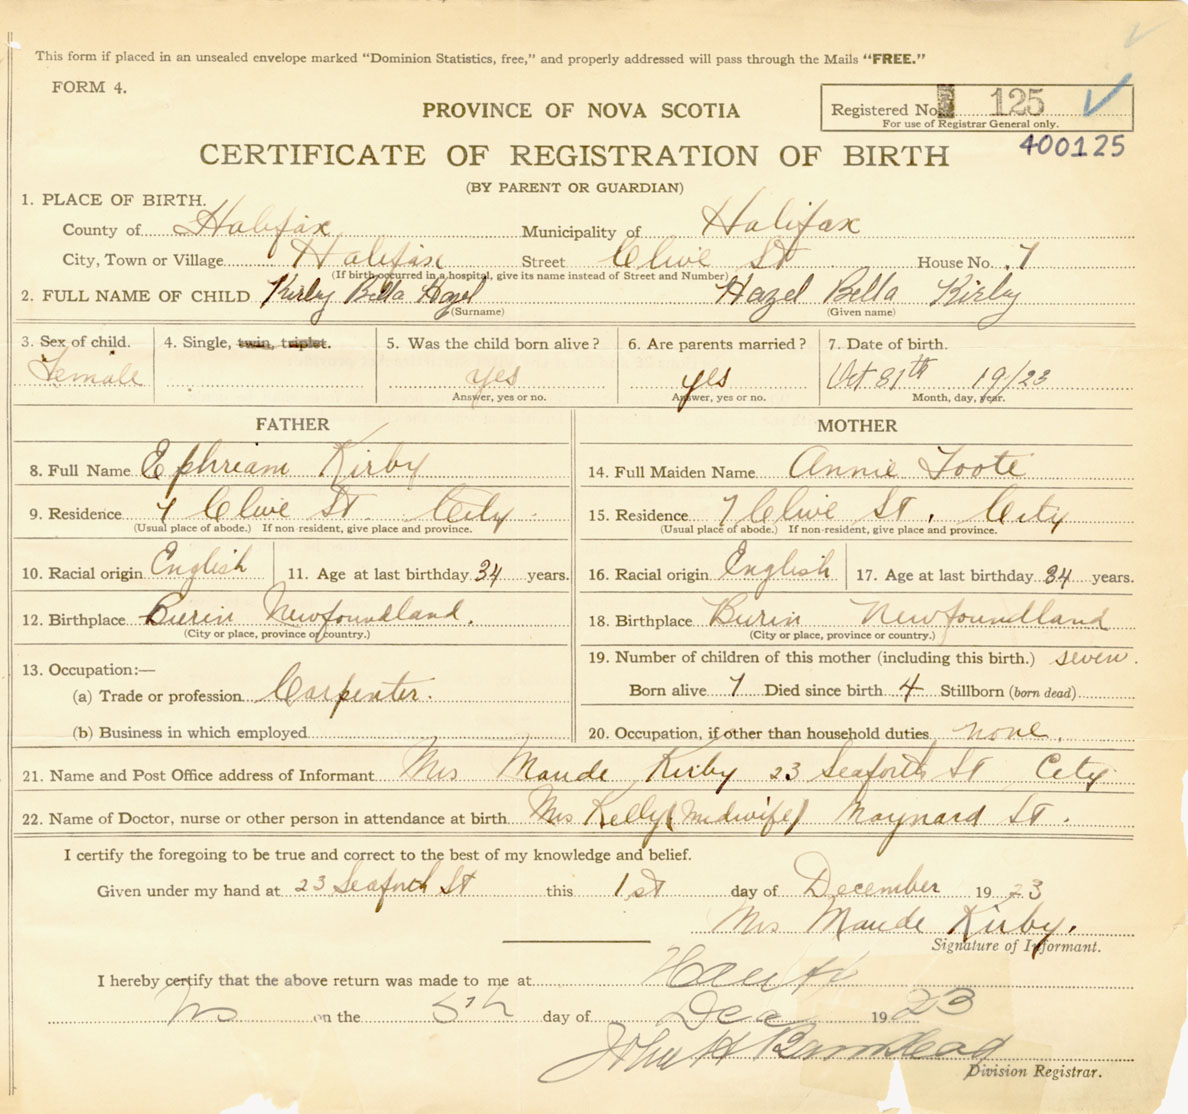 This form if placed in an unsealed envelope marked "Dominion Statistics, free," and properly addressed will pass through the Mails "FREE."
FORM 4.
PROVINCE OF NOVA SCOTIA
Registered No. 125
For use of Registrar General only.
400125
CERTIFICATE OF REGISTRATION OF BIRTH
(BY PARENT OR GUARDIAN)
1. PLACE OF BIRTH.
County of Halifax Municipality of Halifax
City, Town or Village Halifax Street Clive St House No. 7
(If birth occurred in a hospital, give its name instead of Street and Number)
2. FULL NAME OF CHILD Kirby Bella Hazel Hazel Bella Kirby
(Surname) (Given name)
3. Sex of child. 4. Single, twin, triplet. 5. Was the child born alive? 6. Are parents married? 7. Date of birth.
Female yes yes Oct 31th 19/23
Answer, yes or no. Answer, yes or no. Month, day, year.
FATHER MOTHER
8. Full Name Ephriam Kirby 14. Full Maiden Name Annie Foote
9. Residence 7 Clive St City 15. Residence 7 Clive St, City
(Usual place of abode.) If non resident, give place and province. (Usual place of abode.) If non-resident, give place and province.
10. Racial origin English 11. Age at last birthday 34 years. 16. Racial origin English 17. Age at last birthday 34 years.
12. Birthplace Burin Newfoundland. 18. Birthplace Burin Newfoundland
(City or place, province or country.) (City or place, province or country.)
13. Occupation:— 19. Number of children of this mother (including this birth.) seven.
(a) Trade or profession Carpenter. Born alive 7 Died since birth 4 Stillborn (born dead)
(b) Business in which employed 20. Occupation, if other than household duties none.
21. Name and Post Office address of Informant Mrs Maude Kirby 23 Seaforth St City
22. Name of Doctor, nurse or other person in attendance at birth Mrs Kelly (Midwife) Maynard St.
I certify the foregoing to be true and correct to the best of my knowledge and belief.
Given under my hand at 23 Seaforth St this 1st day of December 1923
Mrs Maude Kirby.
Signature of Informant.
I hereby certify that the above return was made to me at
on the 5th day of Dec 1923
John H Barnstead
Division Registrar.